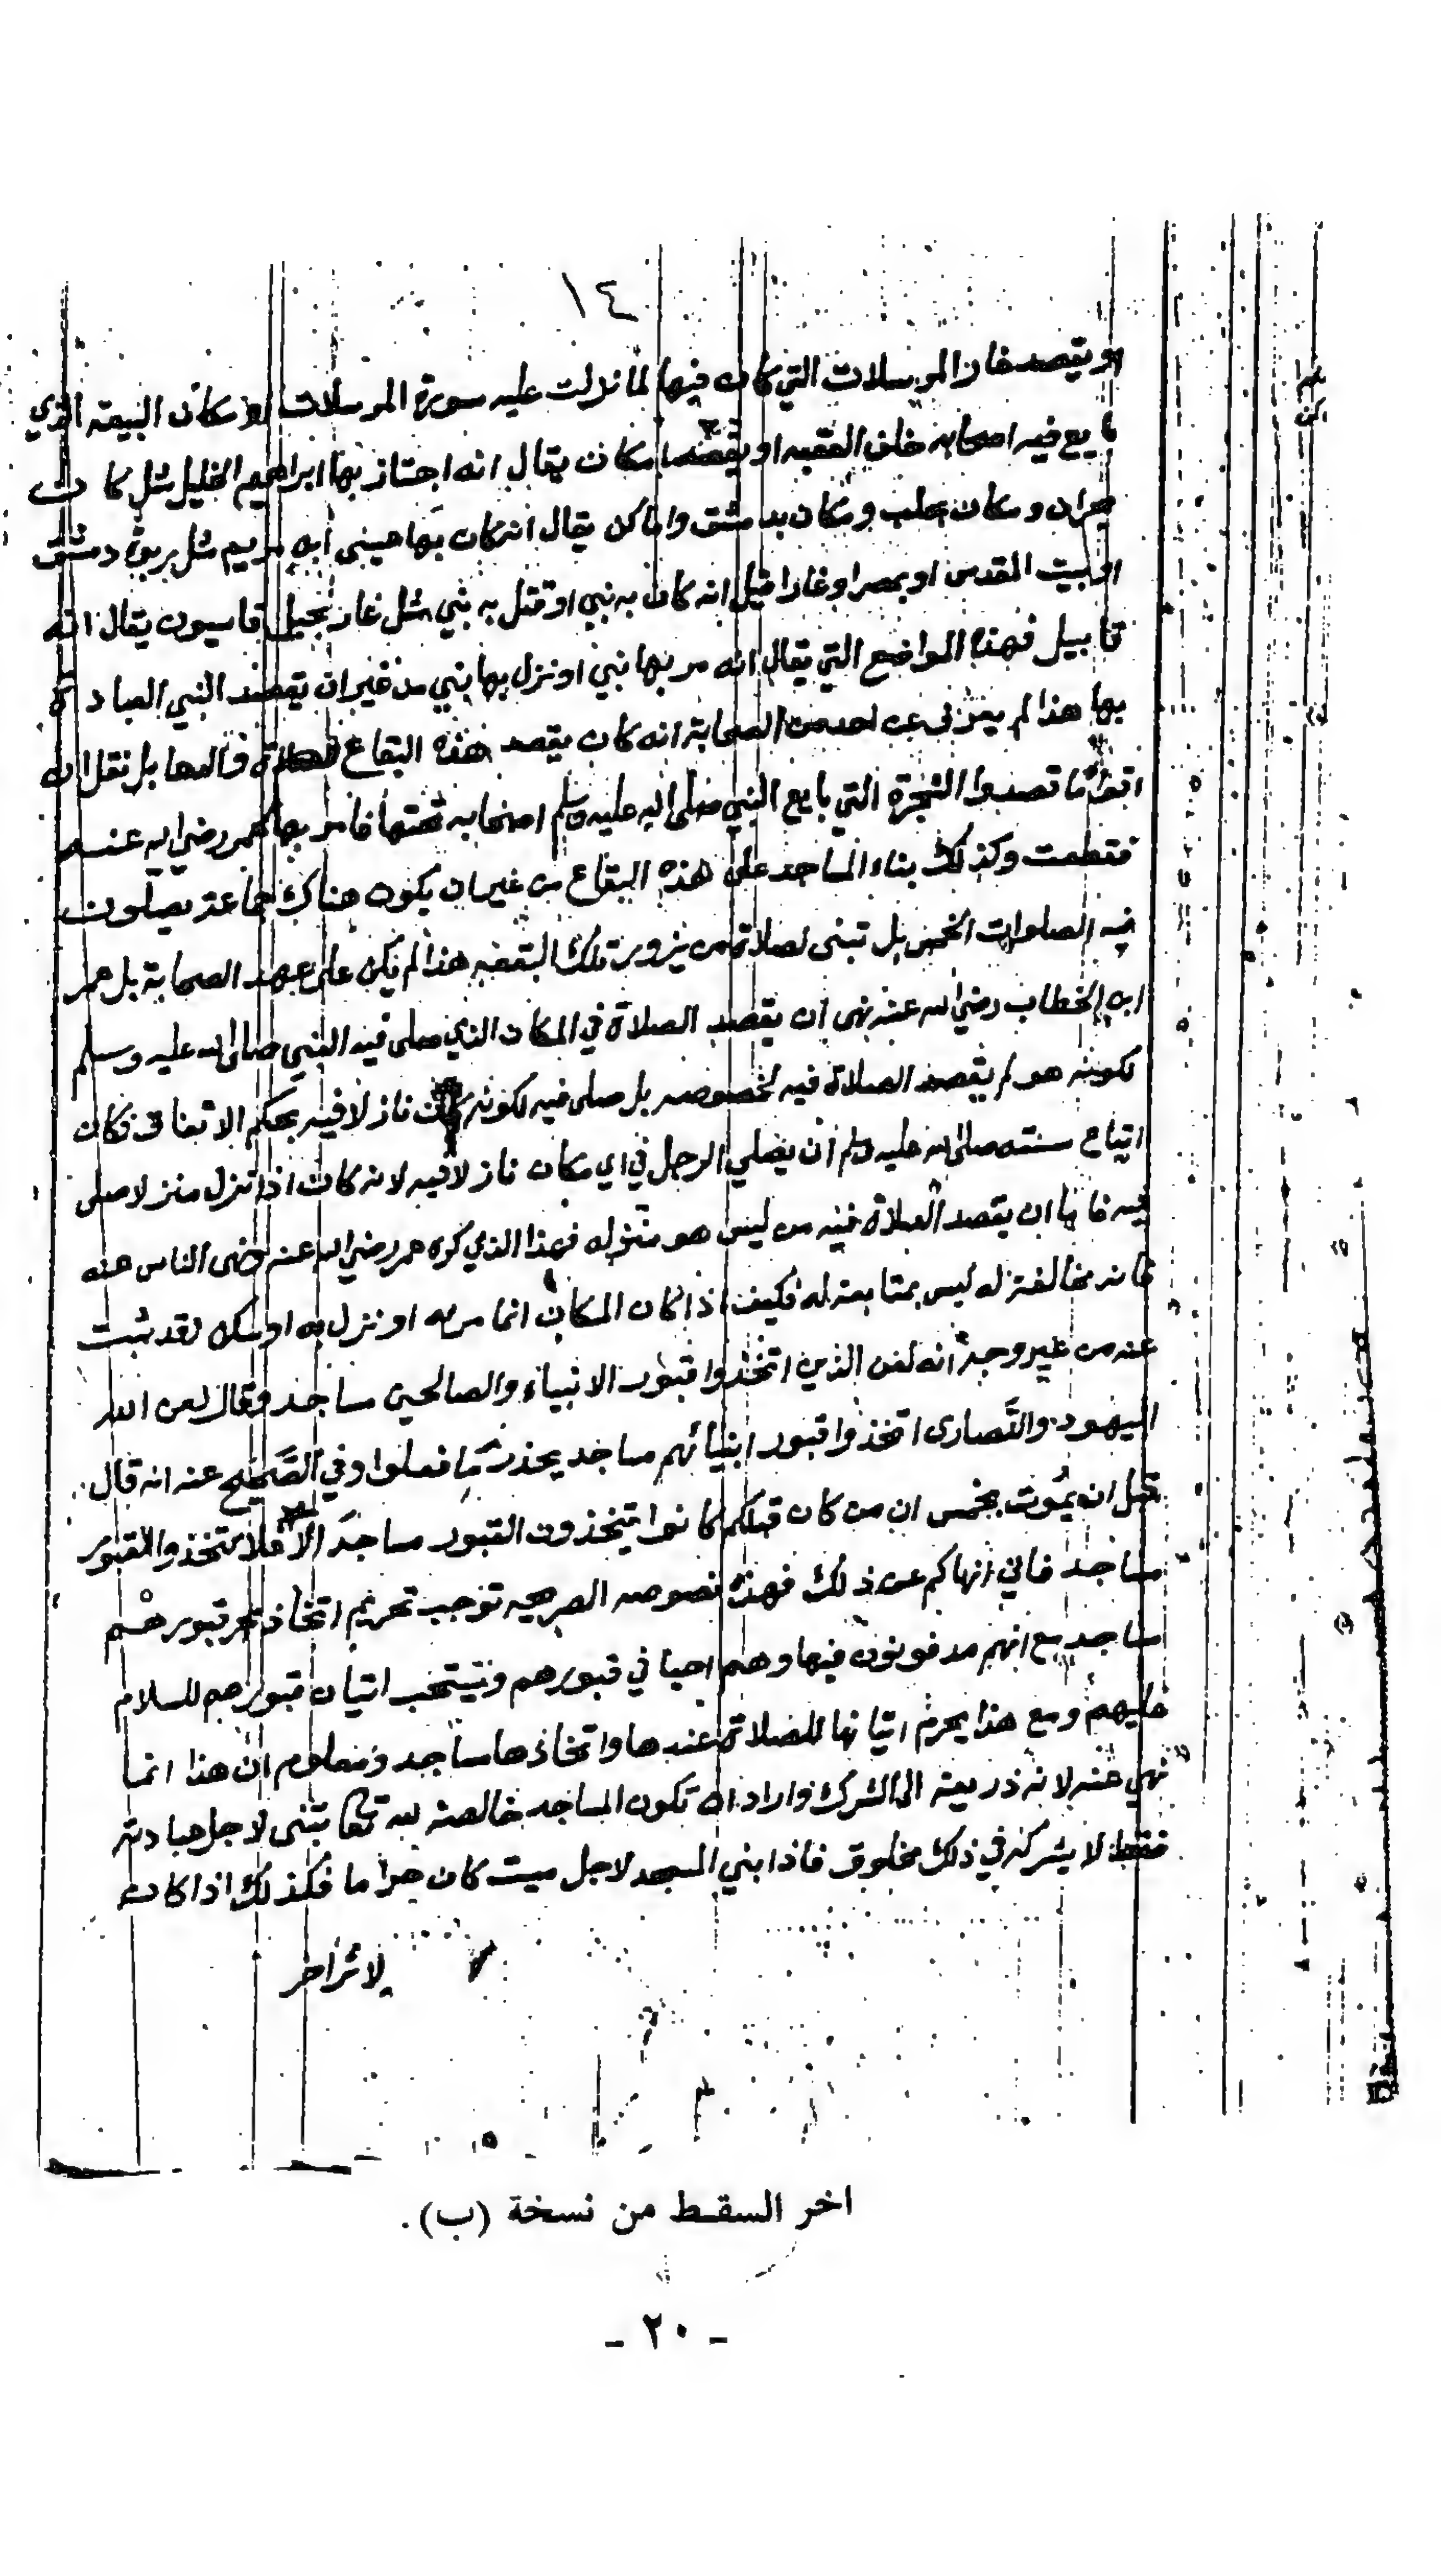 ١٤
او يقصد غار المرسلات التي كان فيها لما نزلت عليه سورة المرسلات او مكان البيعه الذي
بايع فيه اصحابه خلف العقبه او يقصد مكان يقال انه اجتاز بها ابراهيم الخليل مثل كان
بحران ومكان بحلب ومكان بدمشق واماكن يقال انه كان بها عيسى ابن مريم مثل بربوة دمشق
او بيت المقدس او بمصر او غارا قيل انه كان به نبي او قتل به نبي مثل غار بجبل قاسيون يقال انه
قابيل فهذه المواضع التي يقال انه مر بها نبي او نزل بها نبي من غير ان يقصد النبي العبادة
بها هذا لم يعرف عن احد من الصحابة انه كان يقصد هذه البقاع للصلاة بل نقل ان
اقواما قصدوا الشجرة التي بايع النبي صلى الله عليه وسلم اصحابه تحتها فامر بها عمر رضي الله عنه
فقطعت وكذلك بناء المساجد على هذه البقاع من غير ان يكون هناك جماعة يصلون
فيه الصلوات الخمس بل تبنى لصلاة من يزور تلك البقعه هذا لم يكن على عهد الصحابة بل عمر
ابن الخطاب رضي الله عنه نهى ان يقصد الصلاة في المكان الذي صلى فيه النبي صلى الله عليه وسلم
لكونه هو لم يقصد الصلاة فيه لخصوصه بل صلى فيه لكونه كان نازلا فيه بحكم الاتفاق فكان
اتباع سنته صلى الله عليه وسلم ان يصلي الرجل في اي مكان نازلا فيه لانه كان اذا نزل منزلا صلى
فيه فاما ان يقصد الصلاة فيه من ليس هو منزله فهذا الذي كره عمر رضي الله عنه ونهى الناس عنه
فانه مخالفة له ليس بمتابعة له فكيف اذا كان المكان انما مر به او نزل به او سكن لقد ثبت
عنه من غير وجه انه لعن الذين اتخذوا قبور الانبياء والصالحين مساجد وقال لعن الله
اليهود والنصارى اتخذوا قبور انبيائهم مساجد يحذر ما فعلوا وفي الصحيح عنه انه قال
قبل ان يموت بخمس ان من كان قبلكم كانوا يتخذون القبور مساجد الا فلا تتخذوا القبور
مساجد فاني انهاكم عن ذلك فهذه نصوصه الصريحه توجب تحريم اتخاذ قبورهم
مساجد مع انهم مدفونون فيها وهم احيا في قبورهم ويستحب اتيان قبورهم للسلام
عليهم ومع هذا يحرم اتيانها للصلاة عندها واتخاذها مساجد ومعلوم ان هذا انما
نهي عنه لانه ذريعة الى الشرك واراد ان تكون المساجد خالصة لله تعالى تبنى لاجل عبادته
فقط لا يشركه في ذلك مخلوق فاذا بني المسجد لاجل ميت كان حراما فكذلك اذا كان
لاثر اخر
اخر السقط من نسخة (ب).
- ٢٠ -